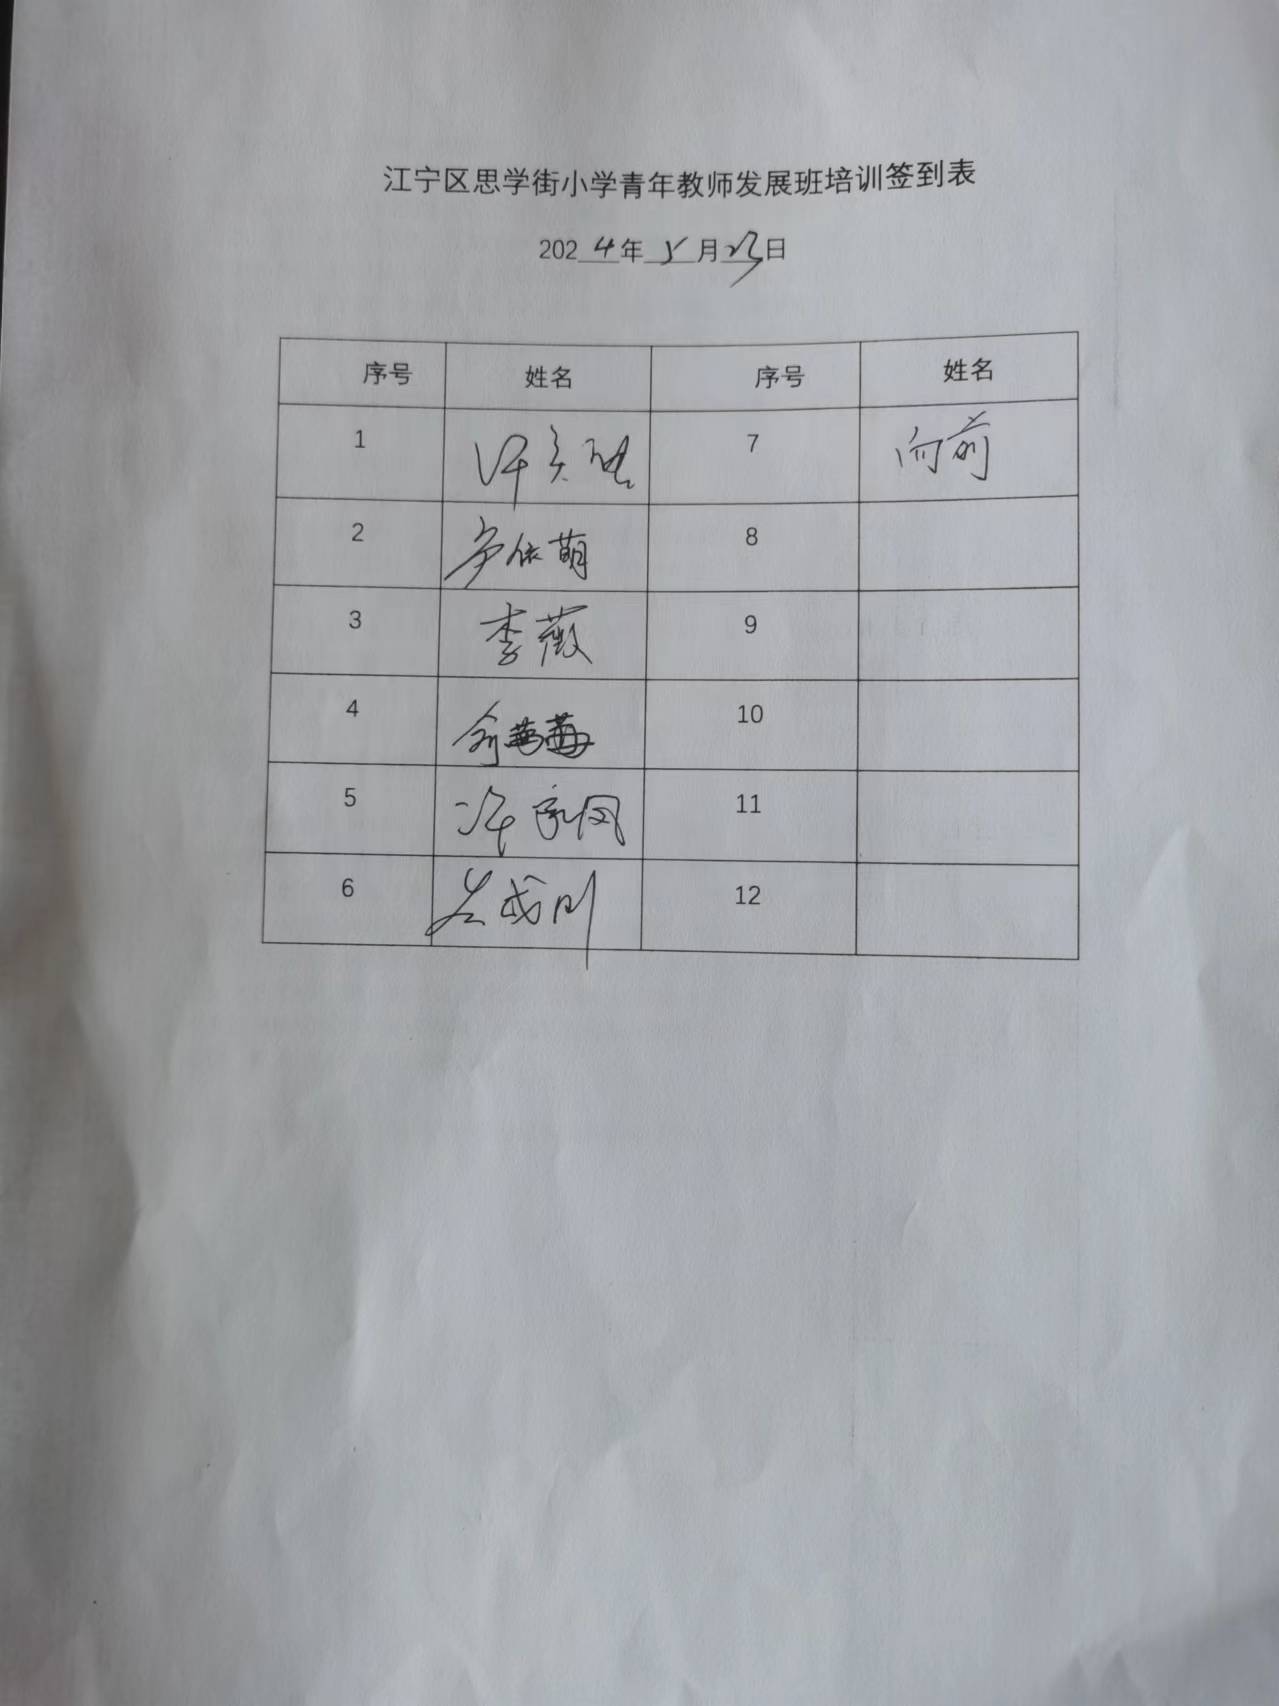 江宁区思学街小学青年教师发展班培训签到表
2024年5月23日
序号 姓名 序号 姓名
1 7 向前
2 尹依萌 8
3 李薇 9
4 俞 10
5 许 11
6 12